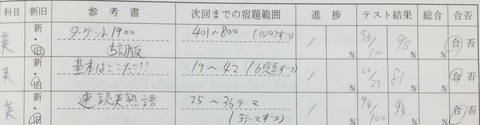 科目 新旧 参考書 次回までの宿題範囲 進捗 テスト結果 総合 合否
英 新・旧 ターゲット1900 401~800 (100ずつ) / 95/100 95% 合否
改訂版
英 新・旧 基本はここだ!! 19~42 (6題ずつ) / 22/27 81 % 合否
英 新・旧 速読英熟語 25~36テーマ / 94/100 94 % 合否
(3テーマずつ)